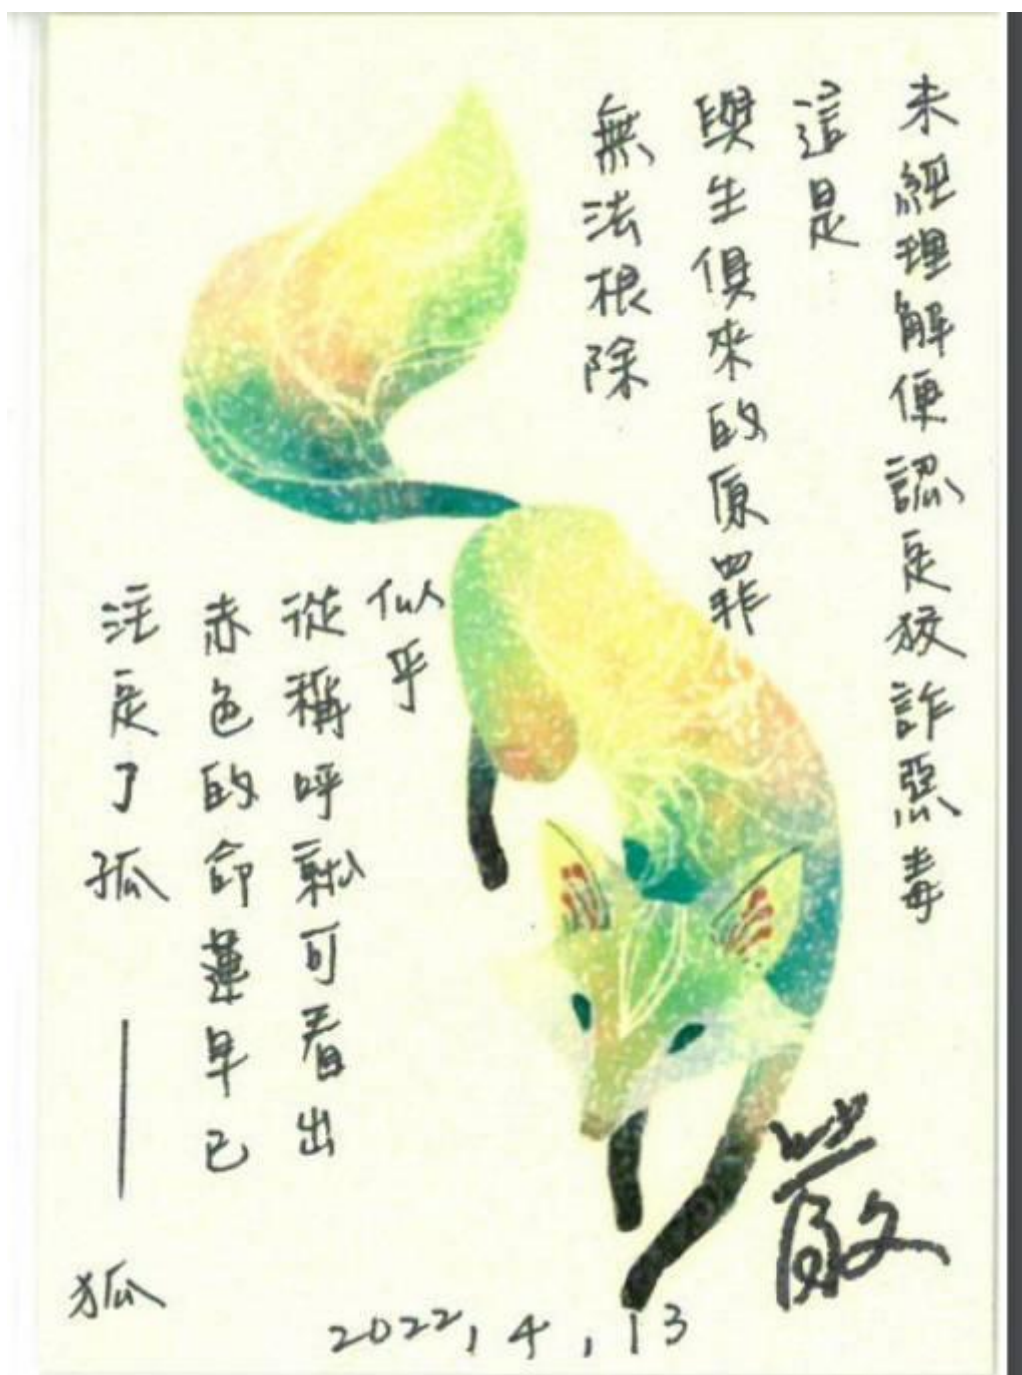 未經理解便認定狡詐惡毒
這是
與生俱來的原罪
無法根除
似乎
從稱呼就可看出
赤色的命運早已
注定了孤——
狐
2022,4,13